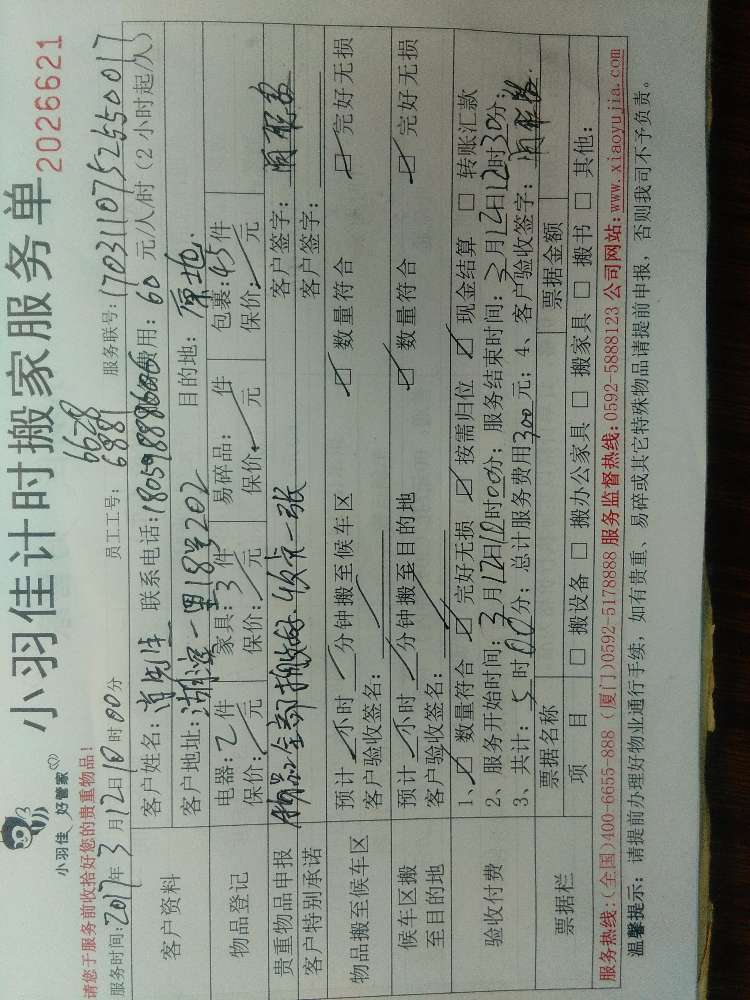 小羽佳 好管家
小羽佳计时搬家服务单
2026621
请您于服务前收拾好您的贵重物品!
6628
服务时间:2017年3月12日10时00分 员工工号: 6889 服务联号:170311075265500 17
客户资料
客户姓名: 联系电话: 费用:60元/人/时(2小时起/次)
客户地址: 一里18号202 目的地:原地.
物品登记
电器:2件 家具:3件 易碎品: 件 包裹:45件
保价: 元 保价: 元 保价: 元 保价: 元
贵重物品申报
物品全部搬好.收卡一张 客户签字:
客户特别承诺
客户签字:
物品搬至候车区
预计 小时 分钟搬至候车区 ☑ 数量符合 ☑ 完好无损
客户验收签名:
候车区搬至目的地
预计 小时 分钟搬至目的地 ☑ 数量符合 ☑ 完好无损
客户验收签名:
验收付费
1、☑ 数量符合 ☑ 完好无损 ☑ 按需归位 ☑ 现金结算 □ 转账汇款
2、服务开始时间:3月12日10时00分;服务结束时间:3月12日12时30分;
3、共计:5时00分;总计服务费用300元;4、客户验收签字:
票据栏
票据名称 票据金额
项 目 □ 搬设备 □ 搬办公家具 □ 搬家具 □ 搬书 □ 其他:
服务热线:(全国)400-6655-888 (厦门)0592-5178888 服务监督热线:0592-5888123 公司网站:www.xiaoyujia.com
温馨提示:请提前办理好物业通行手续,如有贵重、易碎或其它特殊物品请提前申报,否则我司不予负责。